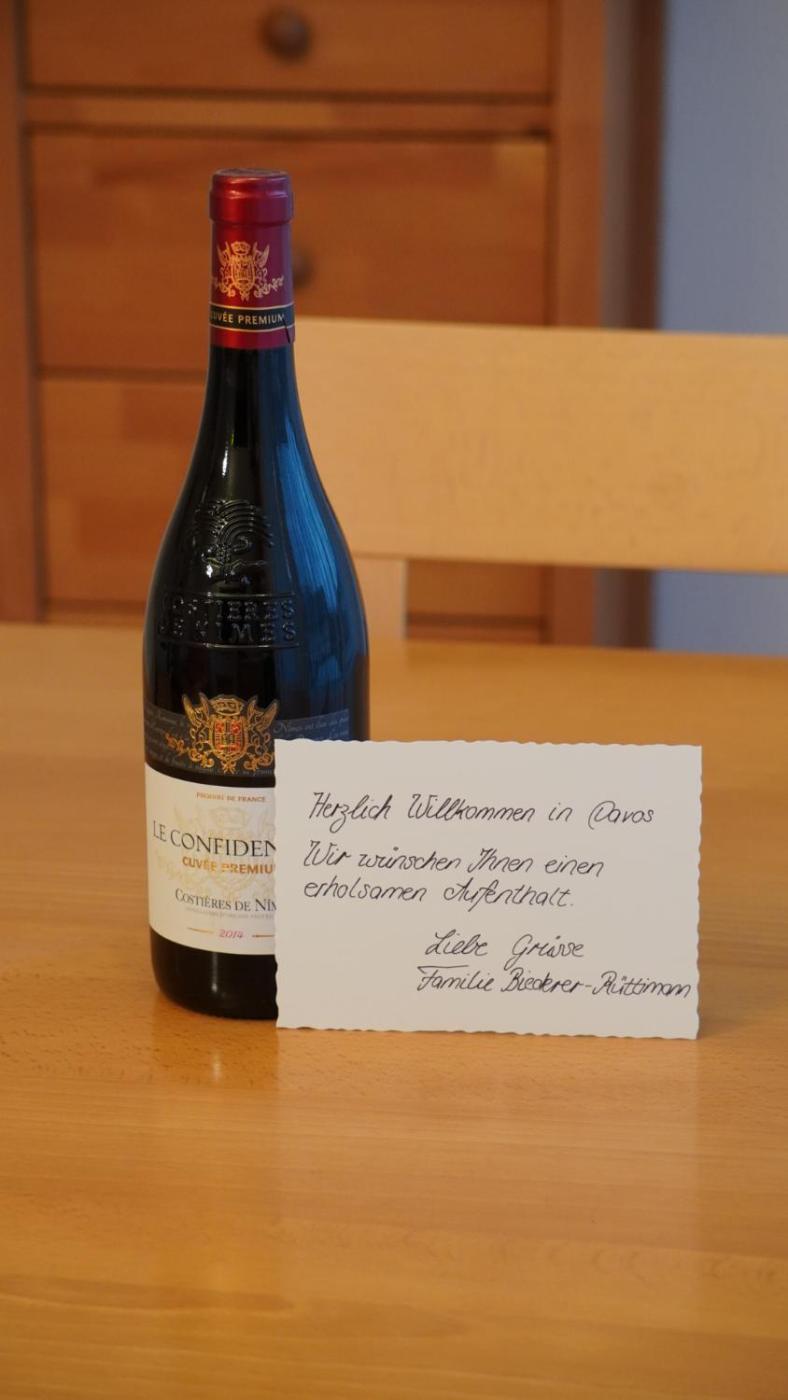 CUVÉE PREMIUM
COSTIERES
DE NIMES
PRODUIT DE FRANCE
LE CONFIDEN
CUVÉE PREMIU
COSTIÈRES DE NÎM
2014
Herzlich Willkommen in Davos
Wir wünschen Ihnen einen
erholsamen Aufenthalt.
Liebe Grüsse
Familie Biederer-Rüttimann